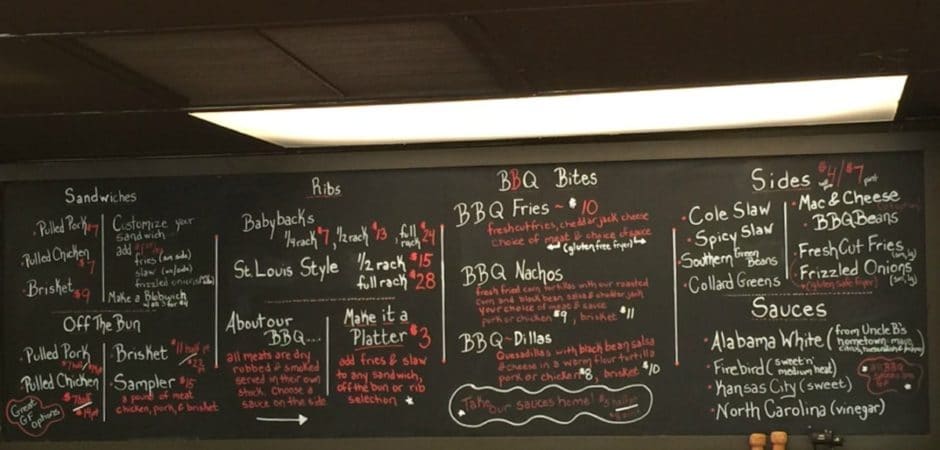 Sandwiches
Pulled Pork $7
Pulled Chicken
$7
Brisket $9
Customize your
sandwich
add
fries (on side)
slaw (on/side)
frizzled onions
Make a Blobwich
Off The Bun
Pulled Pork
Pulled Chicken
Great
GF
options
Brisket
Sampler $15
a pound of meat
chicken, pork, & brisket
Ribs
Babybacks
1/4 rack $7, 1/2 rack $13, full rack $24
St. Louis Style 1/2 rack $15
full rack $28
About our
BBQ...
all meats are dry
rubbed & smoked
served in their own
stock. Choose a
sauce on the side
Make it a
Platter $3
add fries & slaw
to any sandwich,
off the bun or rib
selection
BBQ Bites
BBQ Fries ~ $10
fresh cut fries, cheddar jack cheese
choice of meat & choice of sauce
(gluten free fryer)
BBQ Nachos
fresh fried corn tortillas with our roasted
corn and black bean salsa & cheddar jack
your choice of meat & sauce
pork or chicken $9, brisket $11
BBQ-Dillas
Quesadillas with black bean salsa
& cheese in a warm flour tortilla
pork or chicken $8, brisket $10
Take our sauces home!
Sides $4/$7
Cole Slaw
Spicy Slaw
Southern Green
Beans
Collard Greens
Mac & Cheese
BBQ Beans
Fresh Cut Fries
Frizzled Onions
(gluten safe fryer)
Sauces
Alabama White (from Uncle B's
hometown
Firebird (sweet 'n'
medium heat)
Kansas City (sweet)
North Carolina (vinegar)